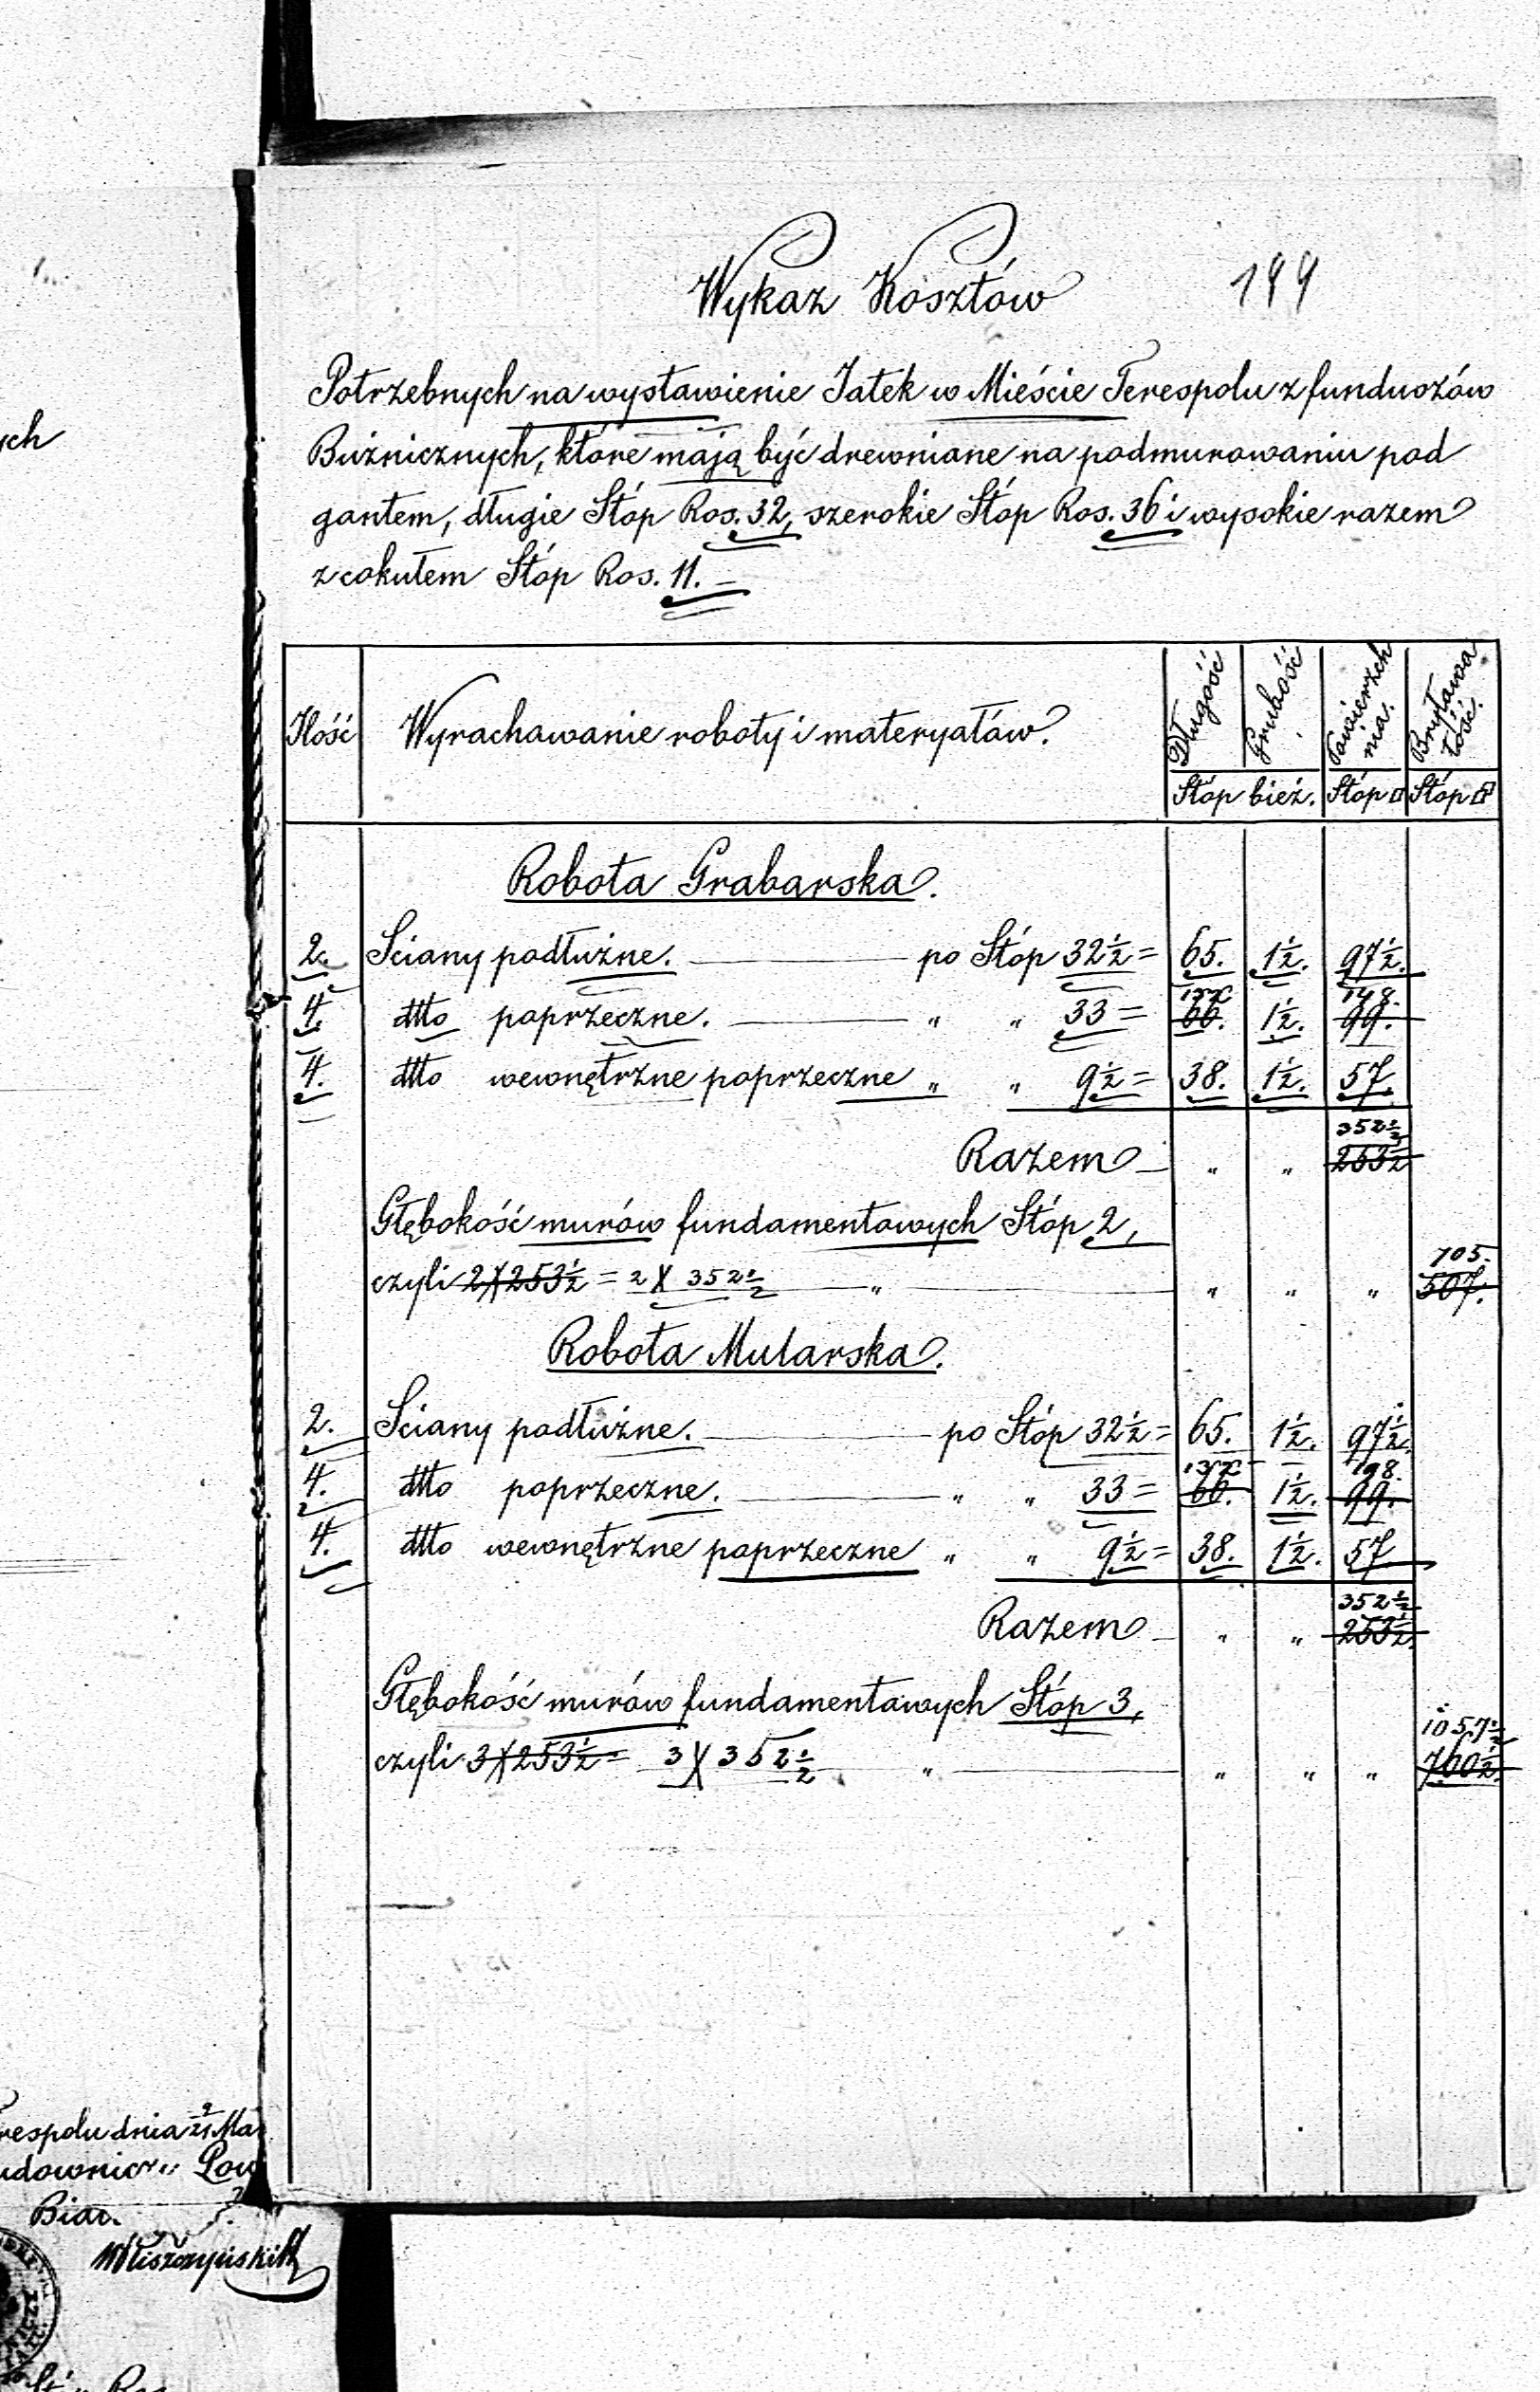 ych
Wykaz Kosztów
199
Potrzebnych na wystawienie Jatek w Mieście Terespolu z funduszów
Bużnicznych, które mają być drewniane na podmurowaniu pod
gontem, długie Stóp Ros. 32, szerokie Stóp Ros. 36 i wysokie razem
z cokułem Stóp Ros. 11. –
Ilość Wyrachowanie roboty i materyałów. Długość Grubość Powierzch nia. Bryłowa tość.
Stóp bież. Stóp □ Stóp
Robota Grabarska.
2. Sciany podłużne. po Stóp 32½ = 65. 1½. 97½.
198.
4. dtto poprzeczne. " " 33 = 66. 1½. 99.
4. dtto wewnętrzne poprzeczne " " 9½ = 38. 1½. 57.
352½
Razem " " 253½
Głębokość murów fundamentowych Stóp 2,
705.
czyli 2X253½ = 2 X 352½ " " " " 507.
Robota Mularska.
2. Sciany podłużne. po Stóp 32½ = 65. 1½. 97½.
198.
4. dtto poprzeczne. " " 33 = 66. 1½. 99.
4. dtto wewnętrzne poprzeczne " " 9½ = 38. 1½. 57
352½
Razem " " 253½.
Głębokość murów fundamentowych Stóp 3,
1057½
czyli 3X253½ = 3X352½ " " " " 760½.
respolu dnia Ma
udownicz Pow
Bial.